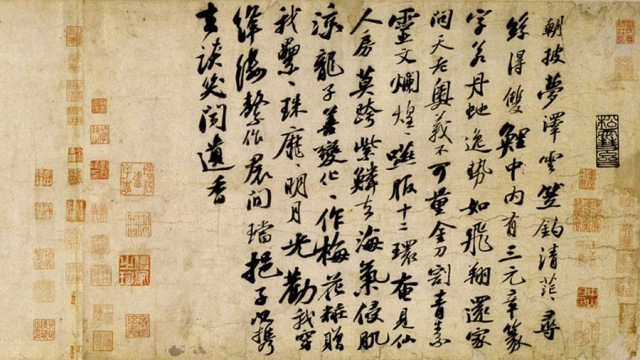 朝披夢澤雲笠釣清茫〻尋
絲得雙鯉中内有三元章篆
字若丹虵逸勢如飛翔還家
問天老奧義不可量金刀割青素
靈文爛煌〻嚥服十二環奄見仙
人房莫跨紫鱗去海氣侵肌
涼龍子善變化〻作梅花粧贈
我纍〻珠靡〻明月光勸我穿
絳縷繫作裾間璫挹子以攜
去談笑聞遺香